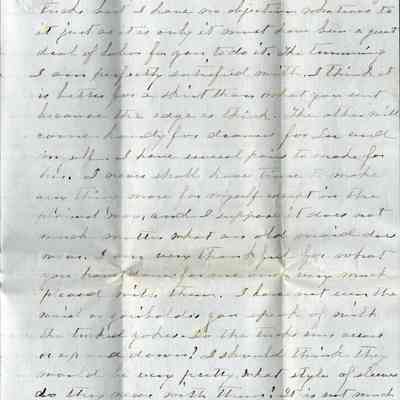 tucks but I have no objection whatever to
it just as it is only it must have been a great
deal of labor for you to do it. The trimming
I am perfectly satisfied with. I think it
is better for a skirt than what you sent
because the edge is thick. The other will
come handy for drawers for and
myself. I have several pairs to make for
her. I never shall have time to make
any thing more for myself except in the
plainest way, and I suppose it does not
much matter what an old maid does
wear. I am very thankful for what
you have done for me and very much
pleased with them. I have not seen the
waist or garibaldis you speak of with
the tucked yokes. Do the tucks run across
or up and down? I should think they
would be very pretty. What style of sleeves
do they wear with them? It is not much